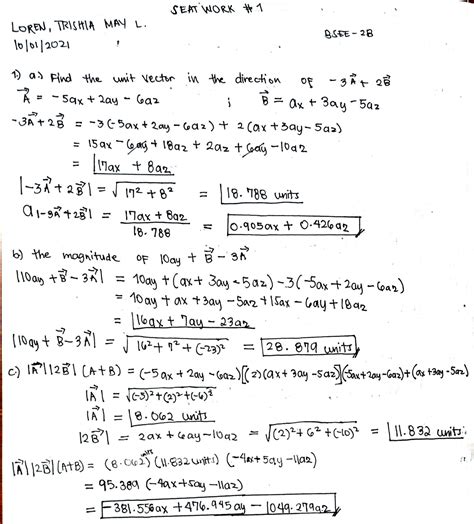 SEATWORK #1
LOREN, TRISHIA MAY L.
10/01/2021
BSEE-2B
1) a.) Find the unit vector in the direction of -3A⃗ + 2B⃗
A⃗ = -5ax + 2ay - 6az ; B⃗ = ax + 3ay - 5az
-3A⃗ + 2B⃗ = -3(-5ax + 2ay - 6az) + 2(ax + 3ay - 5az)
= 15ax - 6ay + 18az + 2ax + 6ay - 10az
= 17ax + 8az
|-3A⃗ + 2B⃗| = √17² + 8² = 18.788 units
a|-3A⃗ + 2B⃗| = 17ax + 8az / 18.788 = 0.905ax + 0.426az
b) the magnitude of 10ay + B⃗ - 3A⃗
|10ay + B⃗ - 3A⃗| = 10ay + (ax + 3ay - 5az) - 3(-5ax + 2ay - 6az)
= 10ay + ax + 3ay - 5az + 15ax - 6ay + 18az
= 16ax + 7ay - 23az
|10ay + B⃗ - 3A⃗| = √16² + 7² + (-23)² = 28.879 units
c) |A⃗||2B⃗| (A+B) = (-5ax + 2ay - 6az)[(2)(ax + 3ay - 5az)](-5ax + 2ay - 6az) + (ax + 3ay - 5az)
|A⃗| = √(-5)² + (2)² + (-6)²
|A⃗| = 8.062 units
|2B⃗| = 2ax + 6ay - 10az = √(2)² + 6² + (-10)² = 11.832 units
|A⃗||2B⃗|(A+B) = (8.062 units)(11.832 units)(-4ax + 5ay - 11az)
= 95.389 (-4ax + 5ay - 11az)
= -381.556ax + 476.945ay - 1049.279az